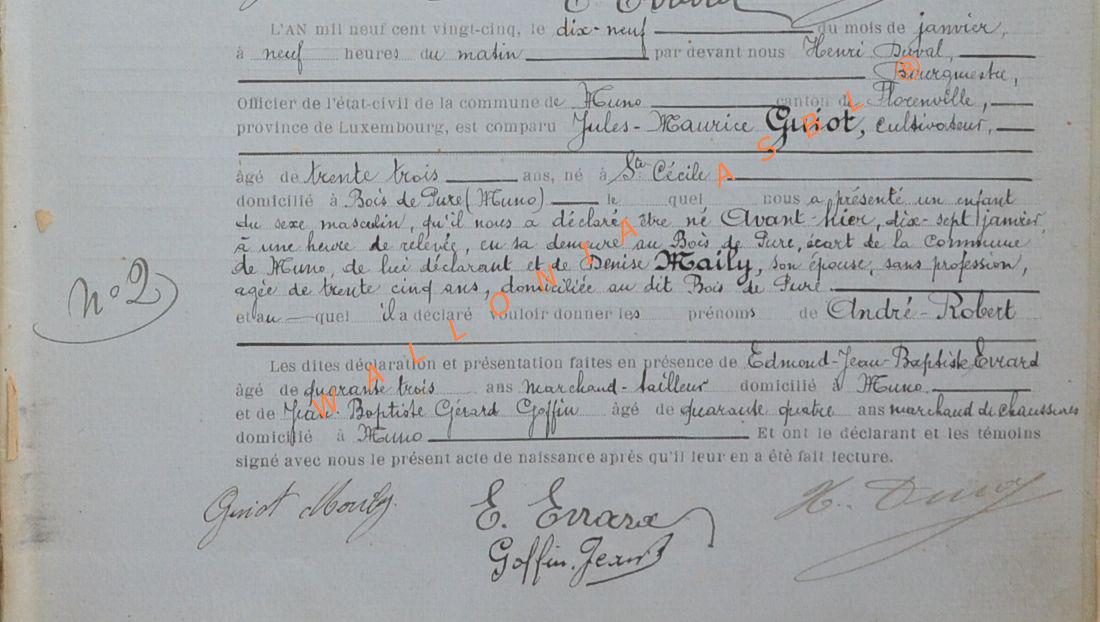 L'AN mil neuf cent vingt-cinq, le dix-neuf du mois de janvier,
à neuf heures du matin par devant nous Henri Duval,
Bourgmestre,
Officier de l'état-civil de la commune de Muno canton de Florenville,
province de Luxembourg, est comparu Jules-Maurice Guiot, cultivateur,
âgé de trente trois ans, né à Ste Cécile
domicilié à Bois de Pure (Muno) le quel nous a présenté un enfant
du sexe masculin, qu'il nous a déclaré être né Avant hier, dix-sept janvier
à une heure de relevée, en sa demeure au Bois de Pure, écart de la commune
de Muno, de lui déclarant et de Denise Maily, son épouse, sans profession,
agée de trente cinq ans, domiciliée au dit Bois de Pure
et au quel il a déclaré vouloir donner les prénoms de André-Robert
n° 2
Les dites déclaration et présentation faites en présence de Edmond-Jean-Baptiste Errard
âgé de quarante trois ans marchand-tailleur domicilié à Muno
et de Jean Baptiste Gérard Goffin âgé de quarante quatre ans marchand de chaussures
domicilié à Muno Et ont le déclarant et les témoins
signé avec nous le présent acte de naissance après qu'il leur en a été fait lecture.
Guiot
E. Errard
H. Duval
Goffin. Jean B
WALLONIA ASBL ®